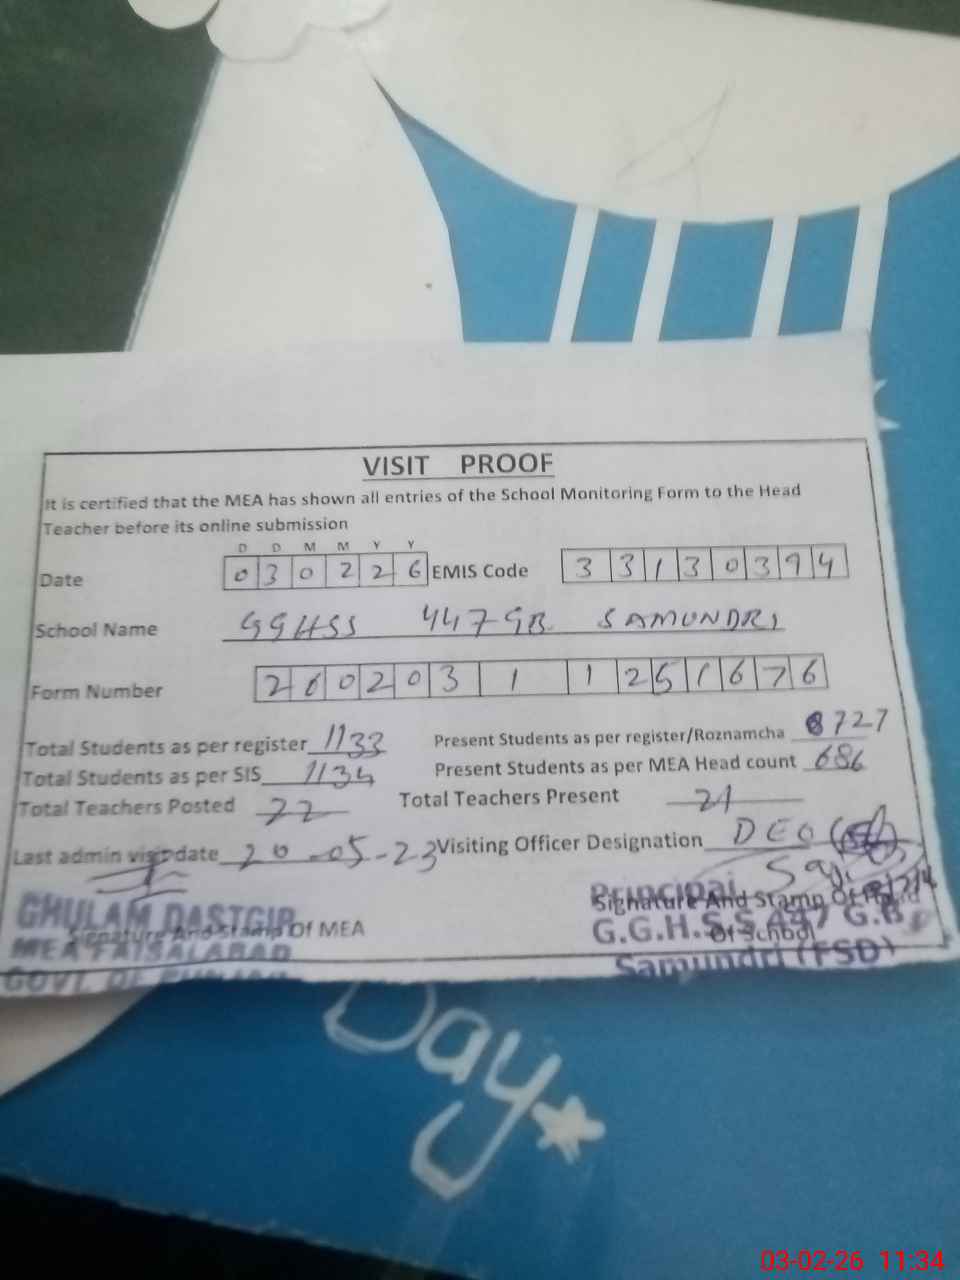 VISIT PROOF
It is certified that the MEA has shown all entries of the School Monitoring Form to the Head
Teacher before its online submission
D D M M Y Y
Date 0 3 0 2 2 6 EMIS Code 3 3 1 3 0 3 9 4
School Name GGHSS 447 GB SAMUNDRI
Form Number 2 6 0 2 0 3 1 1 2 5 1 6 7 6
Total Students as per register 1133 Present Students as per register/Roznamcha 727
Total Students as per SIS 1134 Present Students as per MEA Head count 686
Total Teachers Posted 22 Total Teachers Present 21
Last admin visit date 20-05-23 Visiting Officer Designation DEO
GHULAM DASTGIR
Signature And Stamp Of MEA
MEA FAISALABAD
GOVT. OF PUNJAB
Principal
Signature And Stamp Of Head
G.G.H.S.S 447 G.B
Of School
Samundri (FSD)
Day
03-02-26 11:34